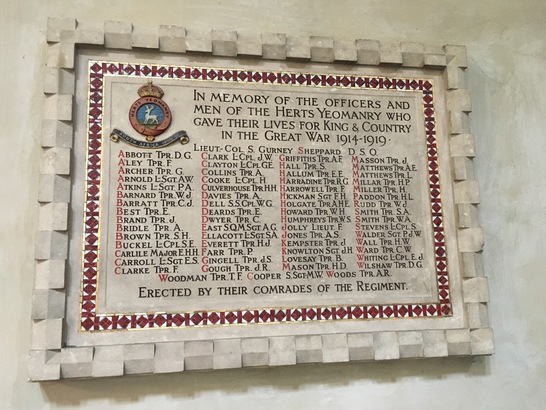 HERTS YEOMANRY
SOUTH AFRICA
IN MEMORY OF THE OFFICERS AND
MEN OF THE HERTS YEOMANRY WHO
GAVE THEIR LIVES FOR KING & COUNTRY
IN THE GREAT WAR 1914-1919.
LIEUT-COL S. GURNEY SHEPPARD D.S.O.
ABBOTT TPR D.G.
ALEY TPR F.
ARCHER TPR G.
ARNOLD L:SGT A.W.
ATKINS L:SGT P.A.
BARNARD TPR W.J.
BARRATT TPR C.J.
BEST TPR E.
BRAND TPR J.
BRIDLE TPR A.
BROWN TPR S.H.
BUCKEL L:CPL S.E.
CARLILE MAJOR E.H.H.
CARROLL L:SGT E.S.
CLARKE TPR F.
CLARK L:CPL J.W.
CLAYTON L:CPL G.E.
COLLINS TPR A.
COOKE L:CPL H.
CULVERHOUSE TPR H.H.
DAVIES TPR A.
DELL S.S.CPL W.G.
DEARDS TPR E.
DWYER TPR C.
EAST S.Q.M.SGT A.G.
ELLACOTT L:SGT S.A.
EVERETT TPR H.J.
FARR TPR P.
GINGELL TPR J.S.
GOUGH TPR J.R.
GRIFFITHS TPR A.F.
HALL TPR S.
HALLUM TPR E.E.
HARRADINE TPR R.G.
HARROWELL TPR F.
HICKMAN SGT F.H.
HOLGATE TPR A.H.E.
HOWARD TPR W.H.
HUMPHREYS TPR W.S.
JOLLY LIEUT. F.
JONES TPR A.S.
KEMPSTER TPR J.
KNOWLTON SGT J.H.
LOVESAY TPR B.
MASON TPR H.D.
MASSON TPR J.
MATTHEWS TPR A.E.
MATTHEWS TPR L.
MILLAR TPR H.P.
MILLER TPR H.
PADDON TPR H.L.
RUDD TPR W.J.
SMITH TPR S.A.
SMITH TPR W.A.
STEVENS L:CPL S.
WALDER SGT P.J.W.
WALL TPR H.W.
WARD TPR C.W.
WHITING L:CPL E.J.
WILSHAW TPR D.G.
WOODMAN TPR T.F. COOPER S.SGT-M.W. WOODS TPR J.
WOODS TPR A.R.
ERECTED BY THEIR COMRADES OF THE REGIMENT.